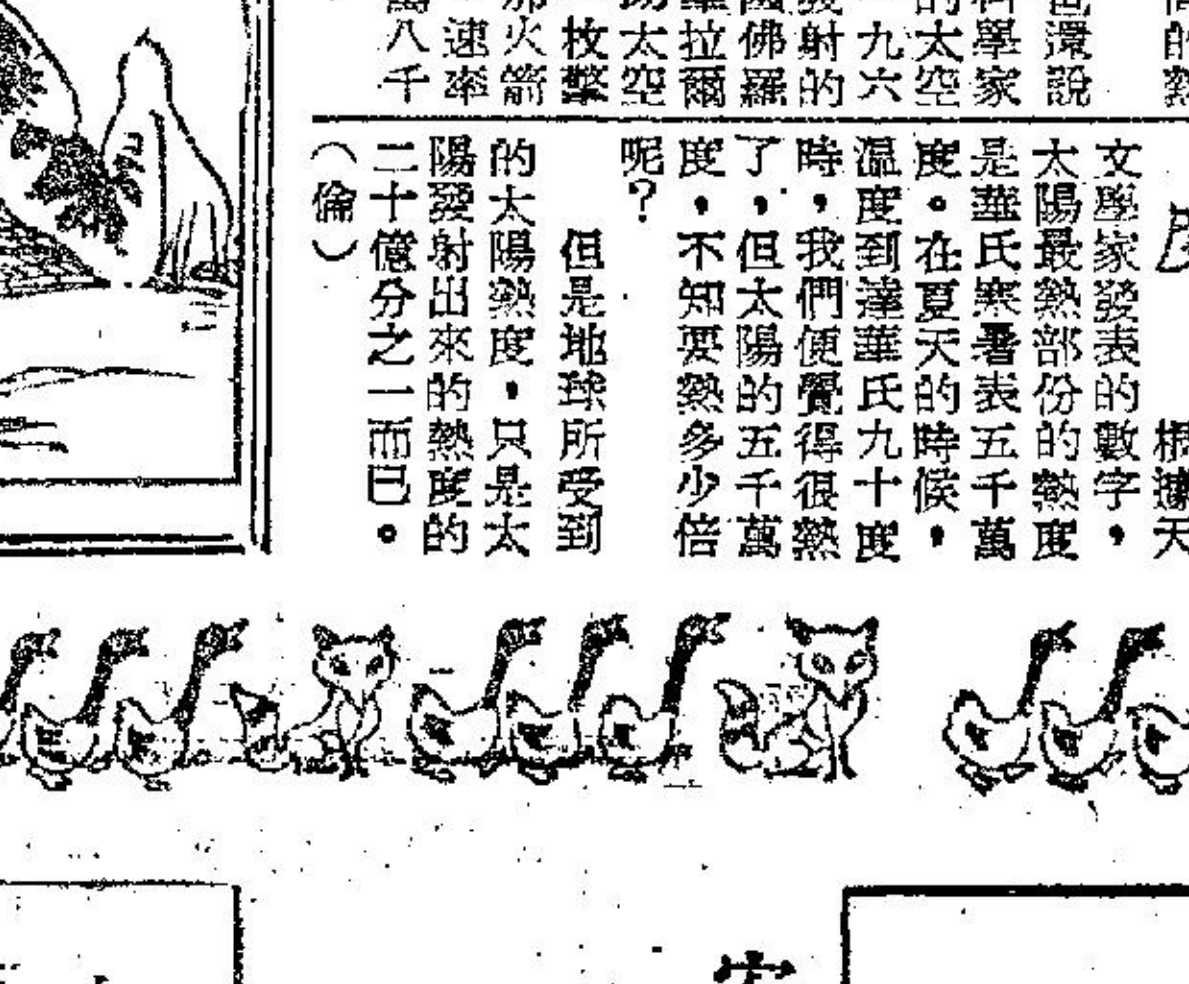 還說
科學家
的太空
九六
射的
佛羅
拉爾
太空
枚擎
火箭
速率
八千
根據天
文學家發表的數字，
太陽最熱部份的熱度
是華氏寒暑表五千萬
度。在夏天的時候，
溫度到達華氏九十度
時，我們便覺得很熱
了，但太陽的五千萬
度，不知要熱多少倍
呢？
但是地球所受到
的太陽熱度，只是太
陽發射出來的熱度的
二十億分之一而已。
（倫）